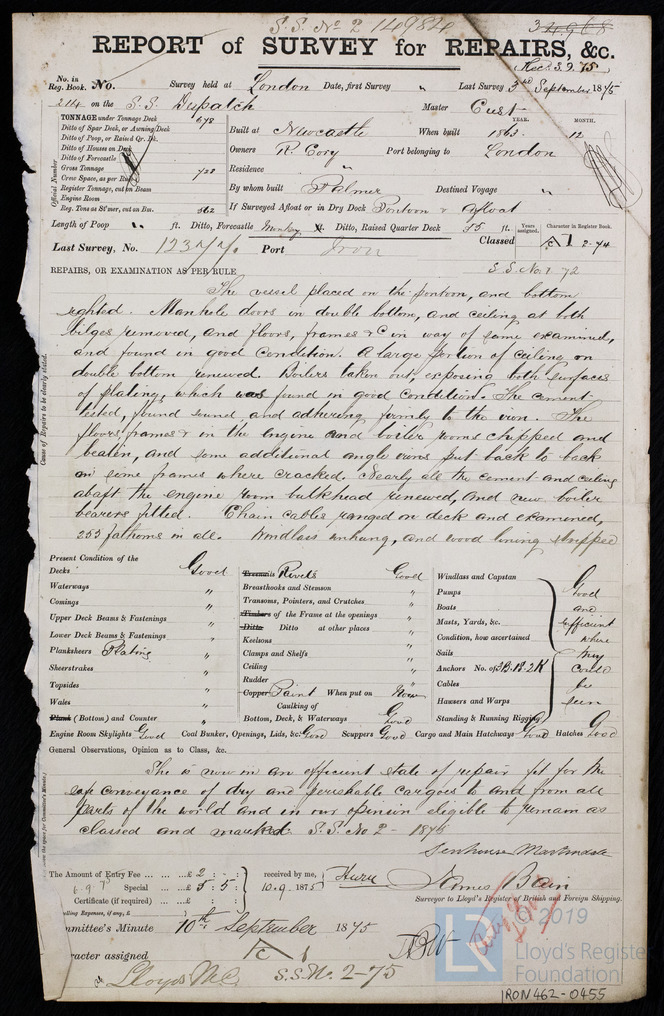 S.S. No 2 14984
34968
REPORT of SURVEY for REPAIRS, &c.
Rec. 3.9.75
No. in Reg. Book. No. Survey held at London Date, first Survey " Last Survey 3rd September 1875
214 on the S.S. Dispatch Master Cust
TONNAGE under Tonnage Deck 678
Ditto of Spar Deck, or Awning Deck
Ditto of Poop, or Raised Qr. Dk.
Ditto of Houses on Deck
Ditto of Forecastle
Gross Tonnage 728
Crew Space, as per Rule
Register Tonnage, cut on Beam
Engine Room
Reg. Tons as St'mer, cut on Bm. 562
Official Number
YEAR. MONTH.
Built at Newcastle When built 1863 12
Owners R. Cory Port belonging to London
Residence "
By whom built Palmer Destined Voyage "
If Surveyed Afloat or in Dry Dock Pontoon & afloat
Length of Poop " ft. Ditto, Forecastle Monkey ft. Ditto, Raised Quarter Deck 55 ft.
Years assigned. Character in Register Book.
Last Survey, No. Port Iron Classed A 1 2-74
REPAIRS, OR EXAMINATION AS PER RULE S.S. No. 1 72
The vessel placed on the pontoon, and bottom
sighted. Manhole doors in double bottom, and ceiling at both
bilges removed, and floors, frames &c in way of same examined,
and found in good condition. A large portion of ceiling on
double bottom renewed. Boilers taken out, exposing both surfaces
of plating, which was found in good condition. The cement
tested, found sound and adhering firmly to the iron. The
floors, frames & in the engine and boiler rooms chipped and
beaten, and some additional angle irons put back to back
on some frames where cracked. Nearly all the cement and ceiling
abaft the engine room bulkhead renewed, and new boiler
bearers fitted. Chain cables ranged on deck and examined,
255 fathoms in all. Windlass unhung, and wood lining stripped
Cause of Repairs to be clearly stated.
Present Condition of the
Decks Good
Waterways "
Comings "
Upper Deck Beams & Fastenings "
Lower Deck Beams & Fastenings "
Planksheers Plating "
Sheerstrakes "
Topsides "
Wales "
Plank (Bottom) and Counter "
Treenails Rivets Good
Breasthooks and Stemson "
Transoms, Pointers, and Crutches "
Timbers of the Frame at the openings "
Ditto Ditto at other places "
Keelsons "
Clamps and Shelfs "
Ceiling "
Rudder "
Copper Paint When put on Now
Caulking of
Bottom, Deck, & Waterways Good
Windlass and Capstan
Pumps
Boats
Masts, Yards, &c.
Condition, how ascertained
Sails
Anchors No. of 3B. 1S. 2K
Cables
Hawsers and Warps
Standing & Running Rigging
Good
and
efficient
where
they
could
be
seen
Good
Engine Room Skylights Good Coal Bunker, Openings, Lids, &c. Good Scuppers Good Cargo and Main Hatchways Good Hatches Good
General Observations, Opinion as to Class, &c.
She is now in an efficient state of repair fit for the
safe conveyance of dry and perishable cargoes to and from all
parts of the world and in our opinion eligible to remain as
classed and marked S.S. No 2 - 1875
Senhouse Martindale
The Amount of Entry Fee ... ...£ 2 : - : - received by me,
6.9.75 Special ... ...£ 5 : 5 : 10.9.1875
Certificate (if required) ... ...£ : :
James Bain
Surveyor to Lloyd's Register of British and Foreign Shipping.
elling Expenses, if any, £
mmittee's Minute 10th September 1875
racter assigned A 1
Lloyds MC S.S. No. 2-75
LR © 2019
Lloyd's Register
Foundation
IRON462-0455